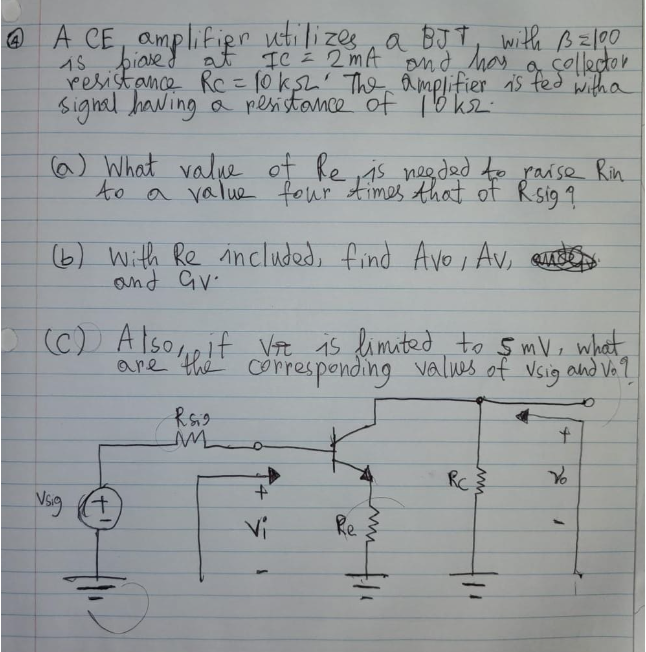 ④ A CE amplifier utilizes a BJT with β=100
is biased at IC = 2mA and has a collector
resistance RC = 10kΩ. The amplifier is fed with a
signal having a resistance of 10kΩ.
(a) What value of Re is needed to raise Rin
to a value four times that of Rsig?
(b) With Re included, find Avo, Av,
and Gv.
(C) Also, if Vπ is limited to 5 mV, what
are the corresponding values of Vsig and Vo?
Rsig
+
Vsig
+
-
+
Vi
-
Re
RC
Vo
-